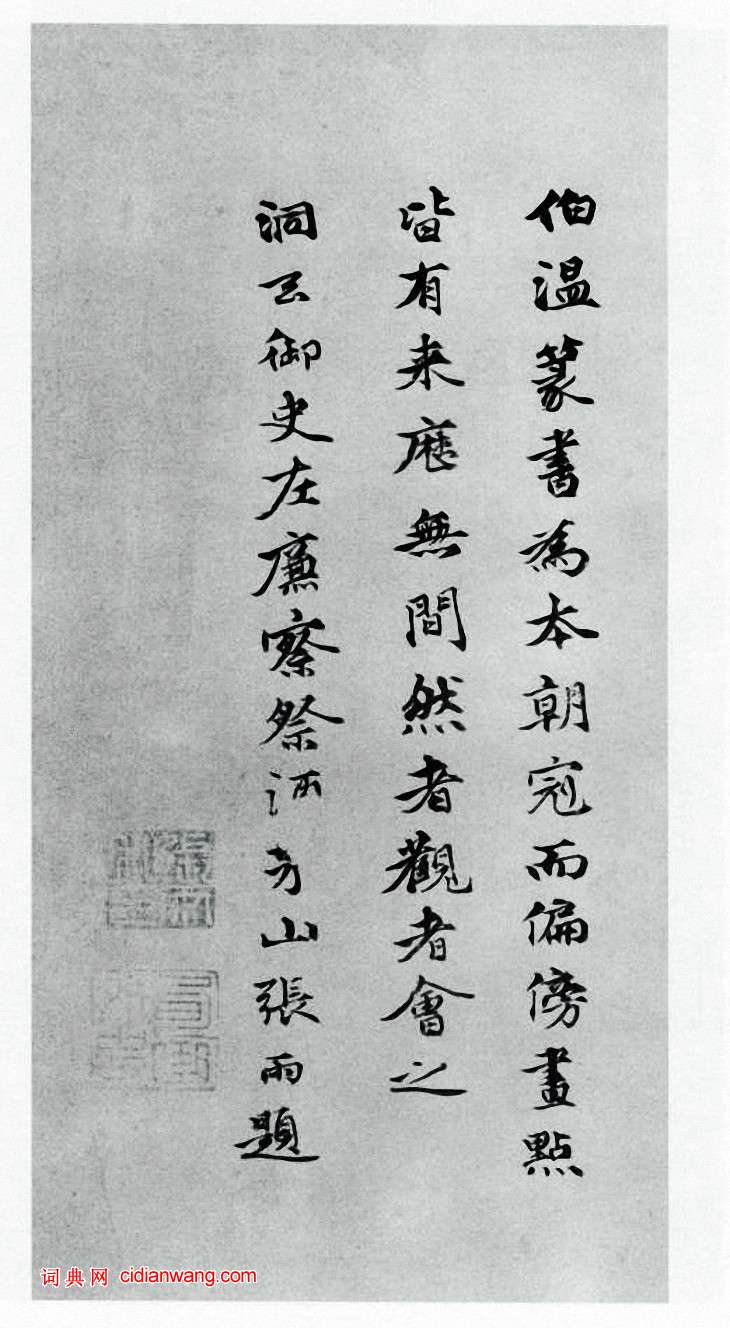 伯温篆書為本朝冠而偏傍畫點
皆有来歷無間然者觀者會之
洞御史左廉察祭酒方山張雨題
词典网 cidianwang.com